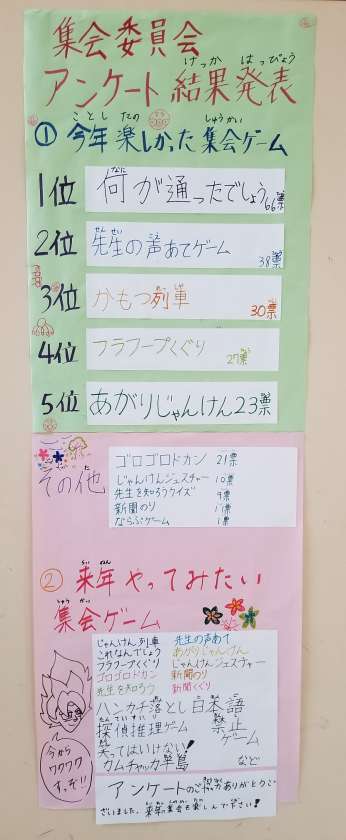 集会委員会
アンケート結果発表
けっか はっぴょう
① 今年楽しかった集会ゲーム
ことし たの しゅうかい
1位 何が通ったでしょう 66票
なに
2位 先生の声あてゲーム 38票
せんせい
3位 かもつ列車 30票
4位 フラフープくぐり 27票
5位 あがりじゃんけん 23票
その他
た
ゴロゴロドカン 21票
じゃんけんジェスチャー 10票
先生を知ろうクイズ 9票
新聞のり
ならぶゲーム 1票
② 来年やってみたい
らいねん
集会ゲーム
しゅうかい
じゃんけん列車 先生の声あて
これなんでしょう あがりじゃんけん
フラフープくぐり じゃんけんジェスチャー
ゴロゴロドカン 新聞のり
先生を知ろう 新聞くぐり
ハンカチ落とし 日本語
探偵推理ゲーム 禁止
たんていすいり
笑ってはいけない! ゲーム
カムチャッカ半島 など
今から
ワクワク
すっぞ!!
アンケートのご ありがとうご
ざいました。来年の集会も楽しんで下さい!